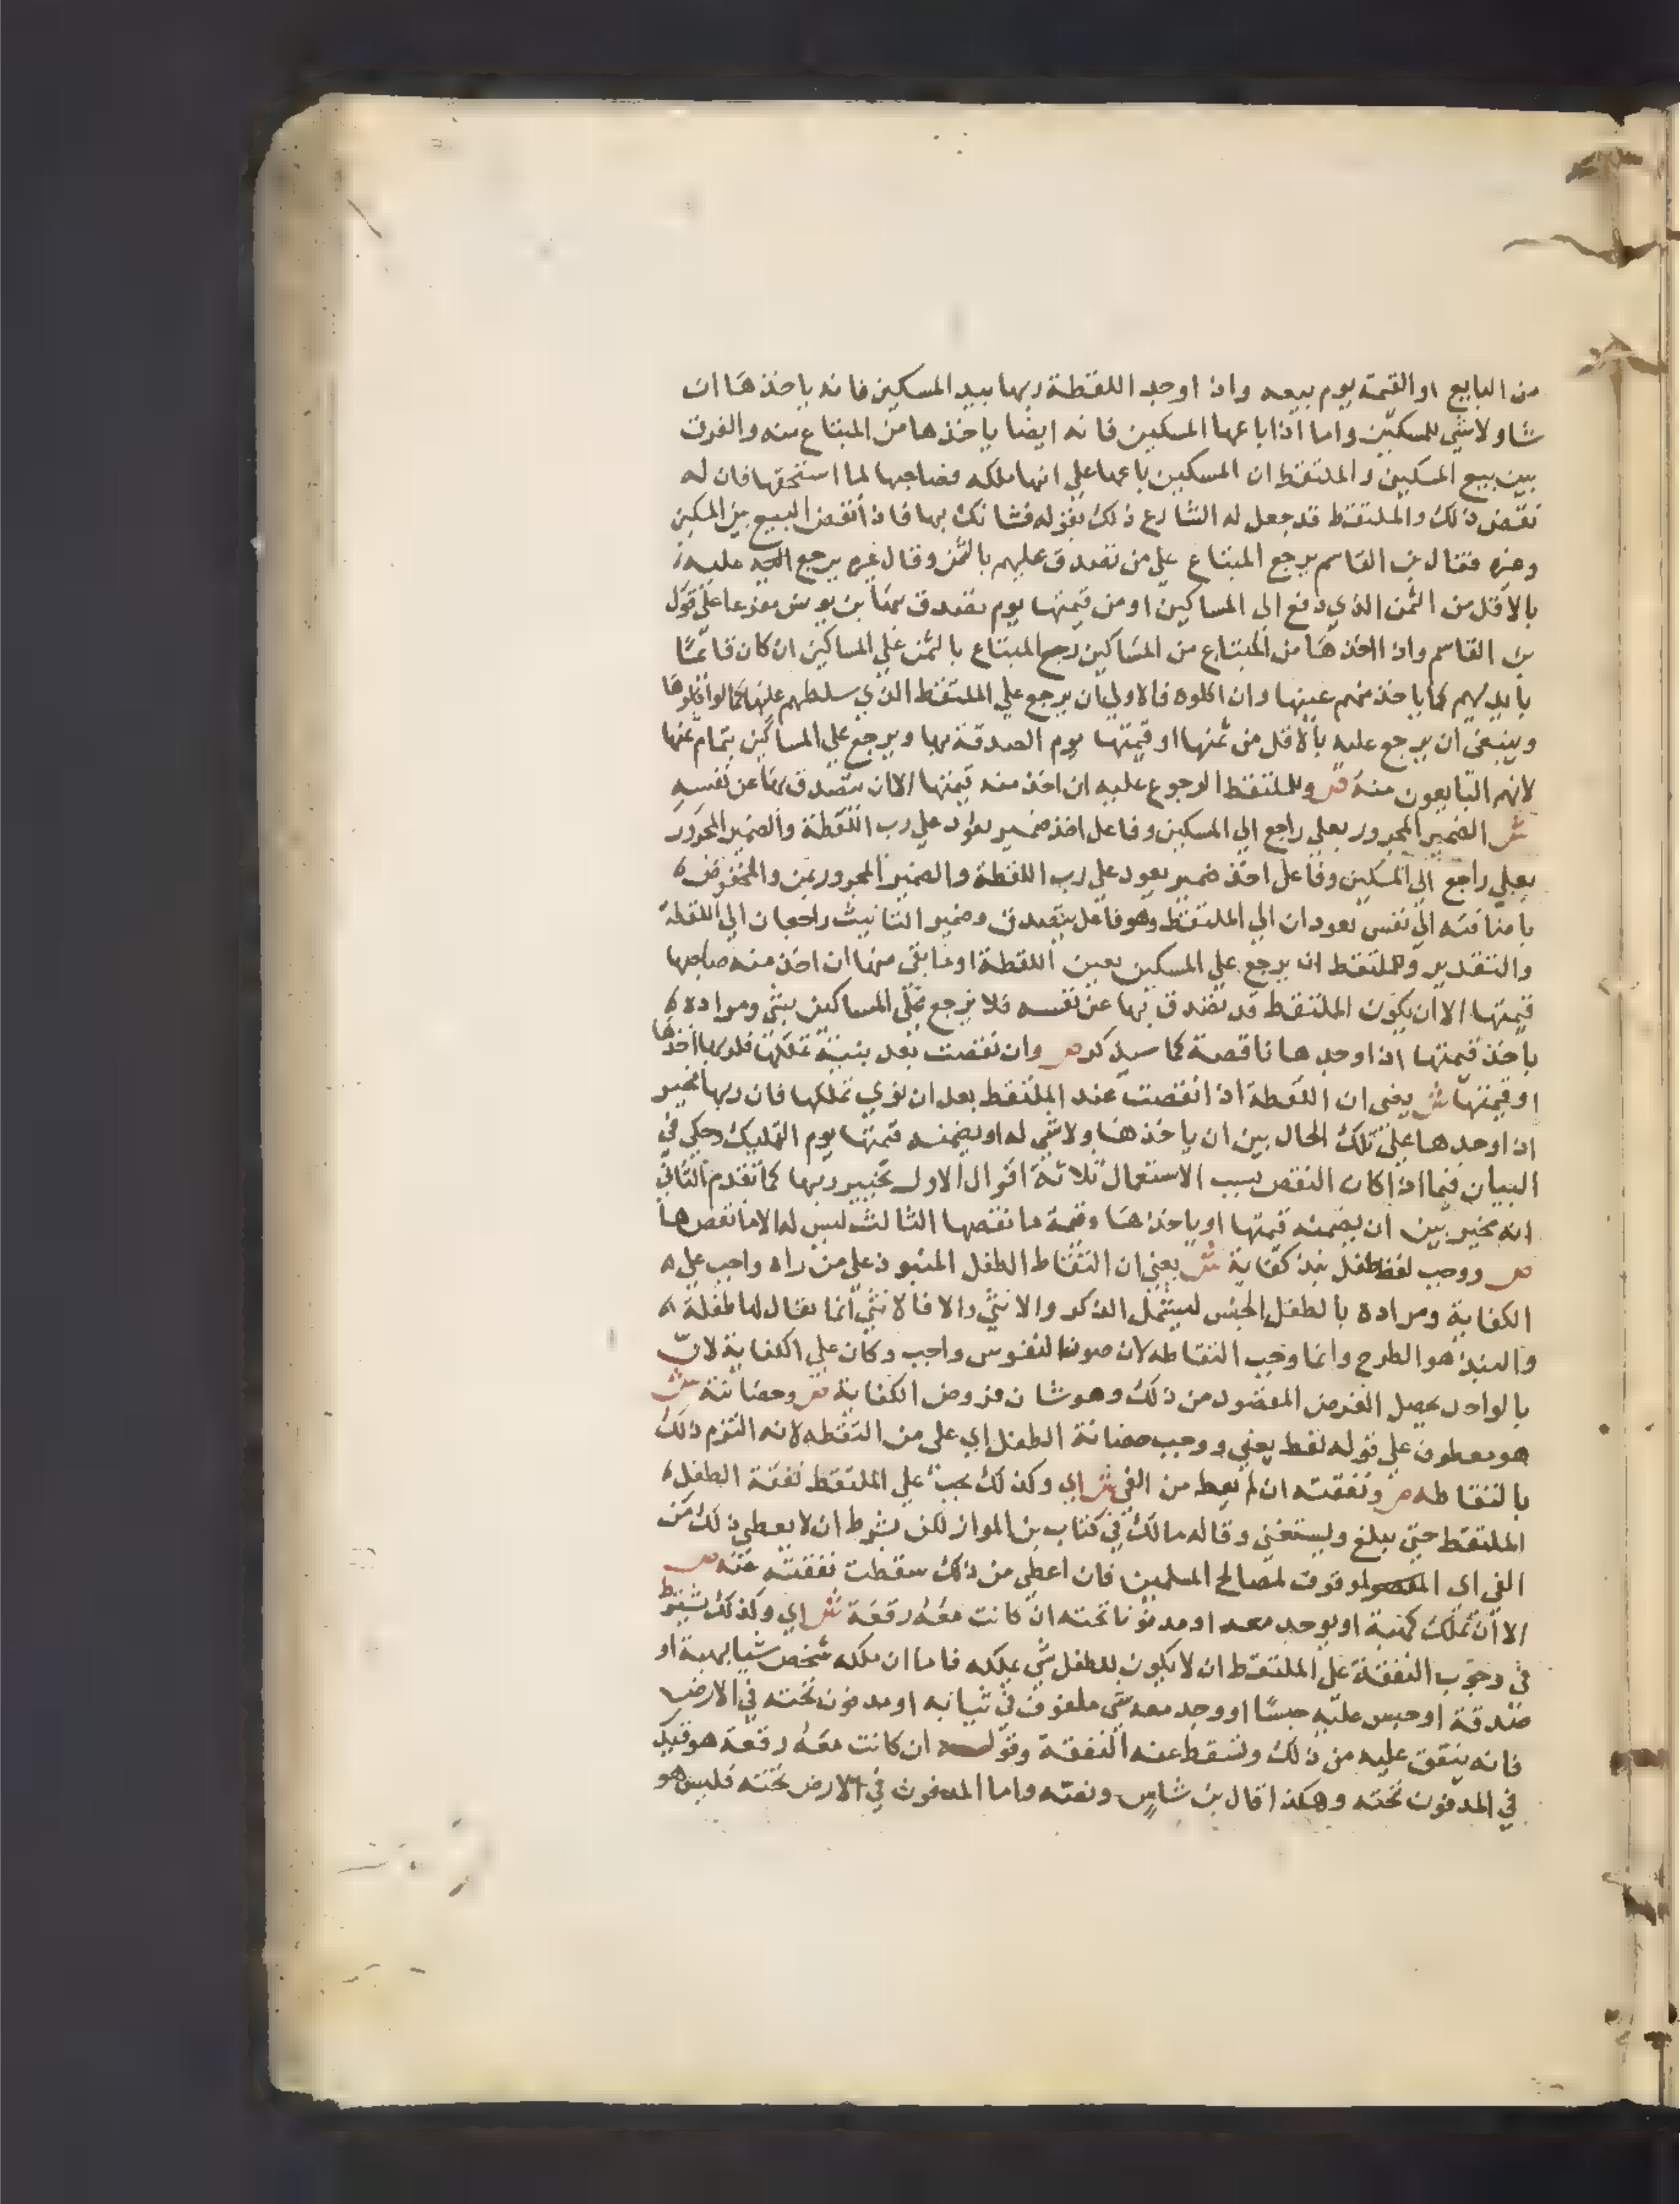 من البايع او القيمة يوم بيعه واذا وجد اللقطة ربها بيد المسكين فانه ياخذها ان
شا ولا شي للمسكين واما اذا باعها المسكين فانه ايضا ياخذها من المبتاع منه والفرق
بين بيع المسكين والملتقط ان المسكين باعها علي انها ملكه فصاحبها لما استحقها فان له
نقض ذلك والملتقط قد جعل له الشارع ذلك بقوله فشانك بها فاذا انتقض البيع بين المسكين
وغيره فقال بن القاسم يرجع المبتاع علي من تصدق عليهم بالثمن وقال غيره يرجع عليه
بالاقل من الثمن الذي دفع الي المساكين او من قيمتها يوم تصدق بها بن يونس مفرعا علي قول
بن القاسم واذا اخذها من المبتاع من المساكين رجع المبتاع بالثمن علي المساكين ان كان قايما
بايديهم كما ياخذ منهم عينها وان اكلوه فالاولي ان يرجع علي الملتقط الذي سلطهم عليها كما لو اكلوها
وينبغي ان يرجع عليه بالاقل من ثمنها او قيمتها يوم الصدقة بها ويرجع علي المساكين بتمام ثمنها
لانهم البايعون منه ص وللملتقط الرجوع عليه ان اخذ منه قيمتها الا ان يتصدق بها عن نفسه
ش الضمير المجرور بعلي راجع الي المسكين وفاعل اخذ ضمير يعود علي رب اللقطة والضمير المجرور
بعلي راجع الي المسكين وفاعل اخذ ضمير يعود علي رب اللقطة والضمير المجرور بمن والمخفوض
باضافته الي نفس يعودان الي الملتقط وهو فاعل يتصدق وضمير التانيث راجعان الي اللقطة
والتقدير وللملتقط ان يرجع علي المسكين بعين اللقطة او ما بقي منها ان اخذ منه صاحبها
قيمتها الا ان يكون الملتقط قد تصدق بها عن نفسه فلا يرجع علي المساكين بشي ومراده
ياخذ قيمتها اذا وجدها ناقصة كما سيذكر ص وان نقصت بعد بنية تملكها فلربها اخذها
او قيمتها ش يعني ان اللقطة اذا انقصت عند الملتقط بعد ان نوي تملكها فان ربها مخير
اذا وجدها علي تلك الحال بين ان ياخذها ولا شي له او يضمنه قيمتها يوم التمليك وحكي في
البيان فيما اذا كان النقص بسبب الاستعمال ثلاثة اقوال الاول تخيير ربها كما تقدم الثاني
انه مخير بين ان يضمنه قيمتها او ياخذها وقيمة ما نقصها الثالث ليس له الا ما نقصها
ص ووجب لقط طفل نبذ كفاية ش يعني ان التقاط الطفل المنبوذ علي من راه واجب علي
الكفاية ومراده بالطفل الجنس ليشمل الذكر والانثي والا فالانثي انما يقال لها طفلة
والنبذ هو الطرح وانما وجب التقاطه لان صون النفوس واجب وكان علي الكفاية لان
بالواحد يحصل الغرض المقصود من ذلك وهو شان فروض الكفاية ص وحضانته ش
هو معطوف علي قوله لقط يعني ووجب حضانة الطفل اي علي من التقطه لانه التزم ذلك
بالتقاطه ص ونفقته ان لم يعط من الفي ش اي وكذلك يجب علي الملتقط نفقة الطفل
الملتقط حتي يبلغ ويستغني وقاله مالك في كتاب بن المواز لكن بشرط ان لا يعطي ذلك من
الفي اي الموقوف لمصالح المسلمين فان اعطي من ذلك سقطت نفقته عنه ص
الا ان تملك كهبة او يوجد معه او مدفونا تحته ان كانت معه رقعة ش اي وكذلك يشترط
في وجوب النفقة علي الملتقط ان لا يكون للطفل شي يملكه فاما ان ملكه شخص شيا بهبة او
صدقة او حبس عليه حبسا او وجد معه شي ملفوف في ثيابه او مدفون تحته في الارض
فانه ينفق عليه من ذلك وتسقط عنه النفقة وقوله ان كانت معه رقعة هو قيد
في المدفون تحته وهكذا قال بن شاس ونصه واما المدفون في الارض تحته فليس هو